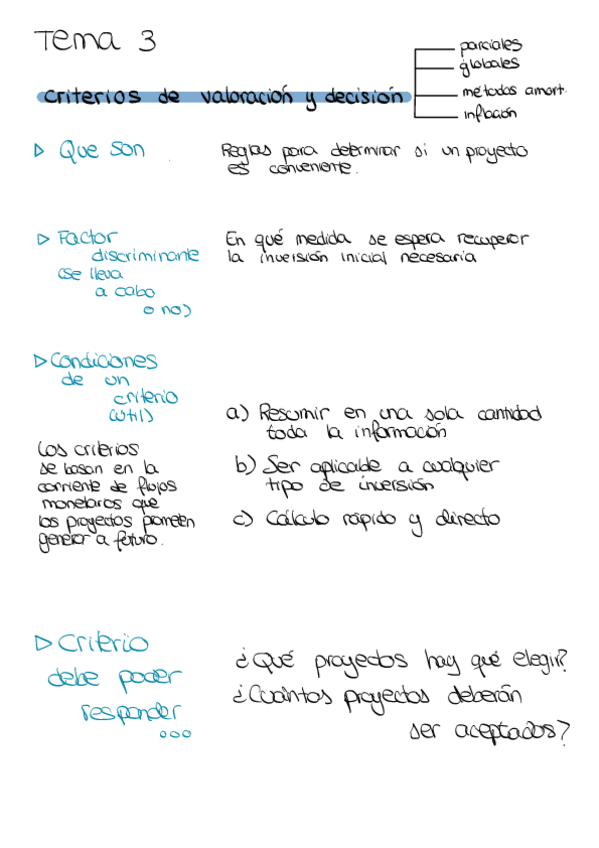 Tema 3
criterios de valoración y decisión
parciales
globales
métodos amort.
inflación
▷ Que son
Reglas para determinar si un proyecto
es conveniente.
▷ Factor
discriminante
(se lleva
a cabo
o no)
En qué medida se espera recuperar
la inversión inicial necesaria
▷ Condiciones
de un
criterio
(útil)
Los criterios
se basan en la
corriente de flujos
monetarios que
los proyectos prometen
generar a futuro.
a) Resumir en una sola cantidad
toda la información
b) Ser aplicable a cualquier
tipo de inversión
c) Cálculo rápido y directo
▷ Criterio
debe poder
responder
...
¿Qué proyectos hay qué elegir?
¿Cuántos proyectos deberán
ser aceptados?